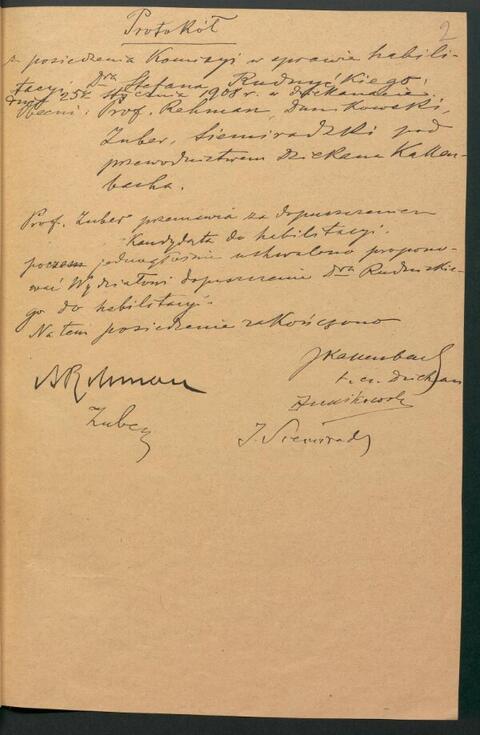 2
Protokół
z posiedzenia Komisyi w sprawie habili-
tacyi Dra Stefana Rudnyćkiego,
dnia 25 stycznia 1908 r. w dziekanacie
Obecni: Prof. Rehman, Dunikowski,
Zuber, Siemiradzki pod
przewodnictwem dziekana Kallen-
bacha.
Prof. Zuber przemawia za dopuszczeniem
Kandydata do habilitacyi.
poczem jednogłośnie uchwalono propono-
wać Wydziałowi dopuszczenie Dra Rudnickie-
go do habilitacyi.
Na tem posiedzenie zakończono
JKallenbach
t. cz. dziekan
ARehman
Dunikowski
Zuber
J. Siemiradzki